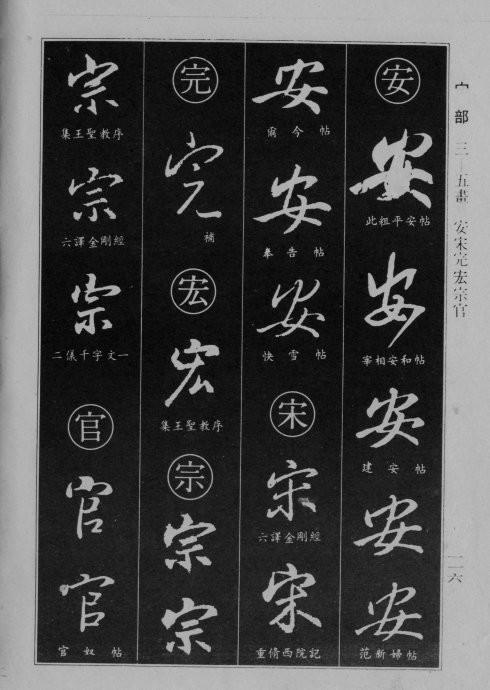 宀部 三—五畫 安宋完宏宗官
一一六
安
安
此粗平安帖
安
宰相安和帖
安
建安帖
安
安
范新婦帖
安
帖今
安
奉告帖
安
快雪帖
宋
宋
六譯金剛經
宋
重脩西院記
完
完
補
宏
宏
集王聖教序
宗
宗
宗
宗
集王聖教序
宗
六譯金剛經
宗
二儀千字文一
官
官
官
官奴帖